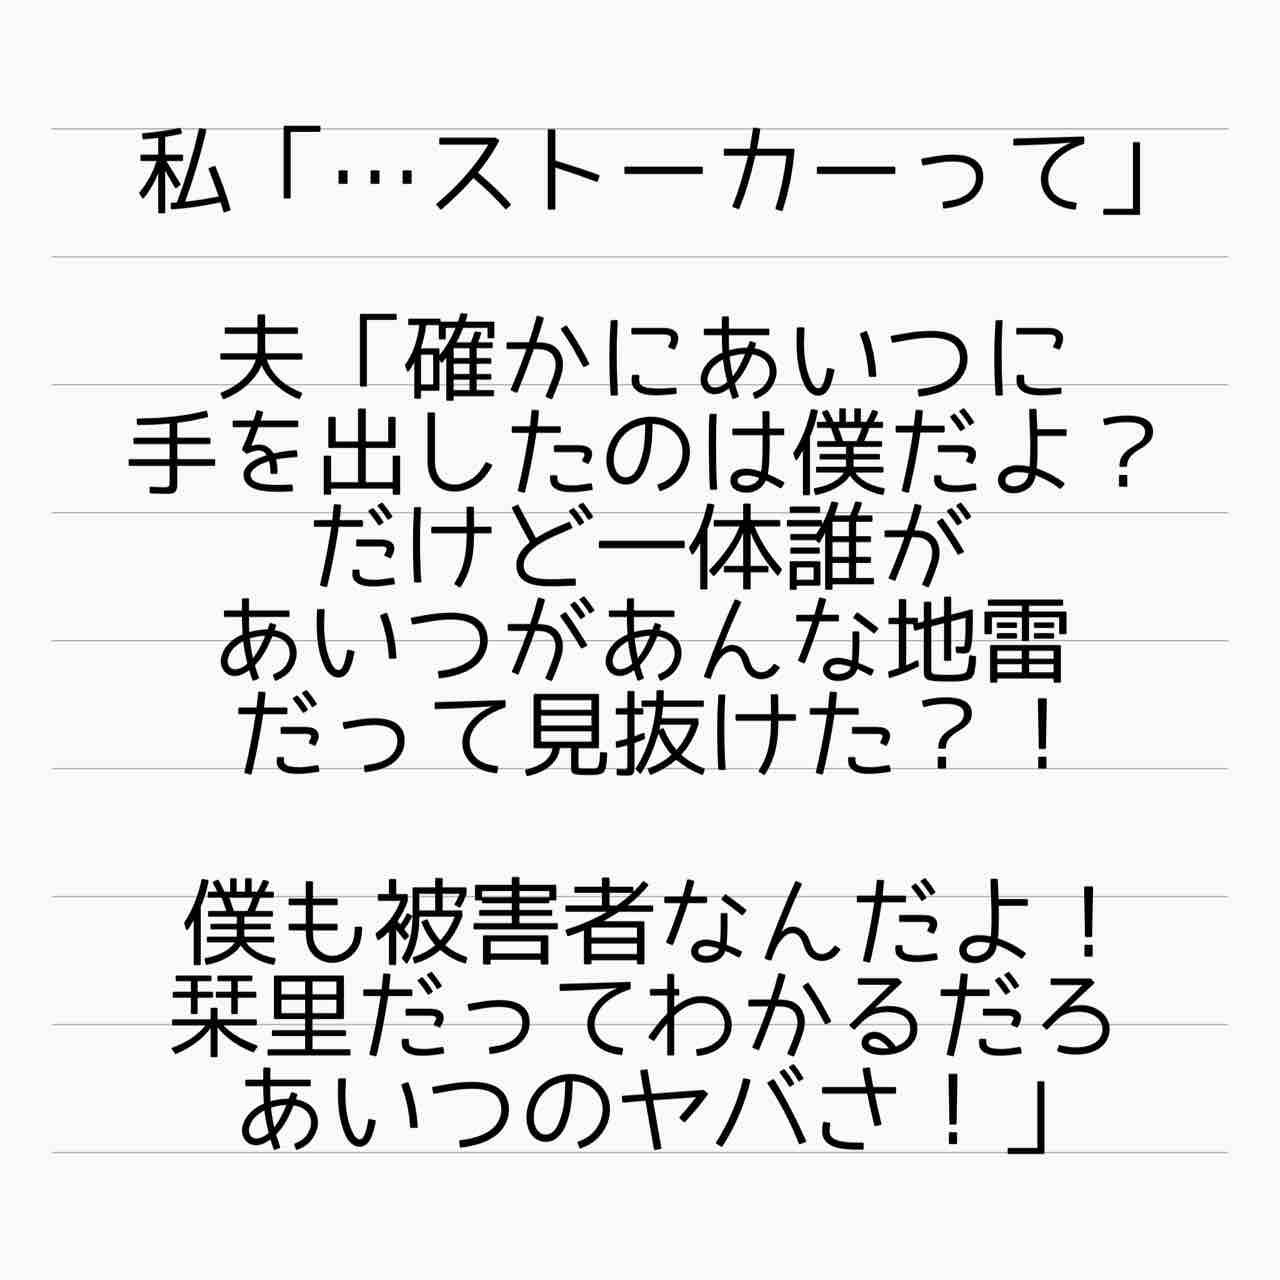 私「…ストーカーって」
夫「確かにあいつに
手を出したのは僕だよ？
だけど一体誰が
あいつがあんな地雷
だって見抜けた？！
僕も被害者なんだよ！
栞里だってわかるだろ
あいつのヤバさ！」